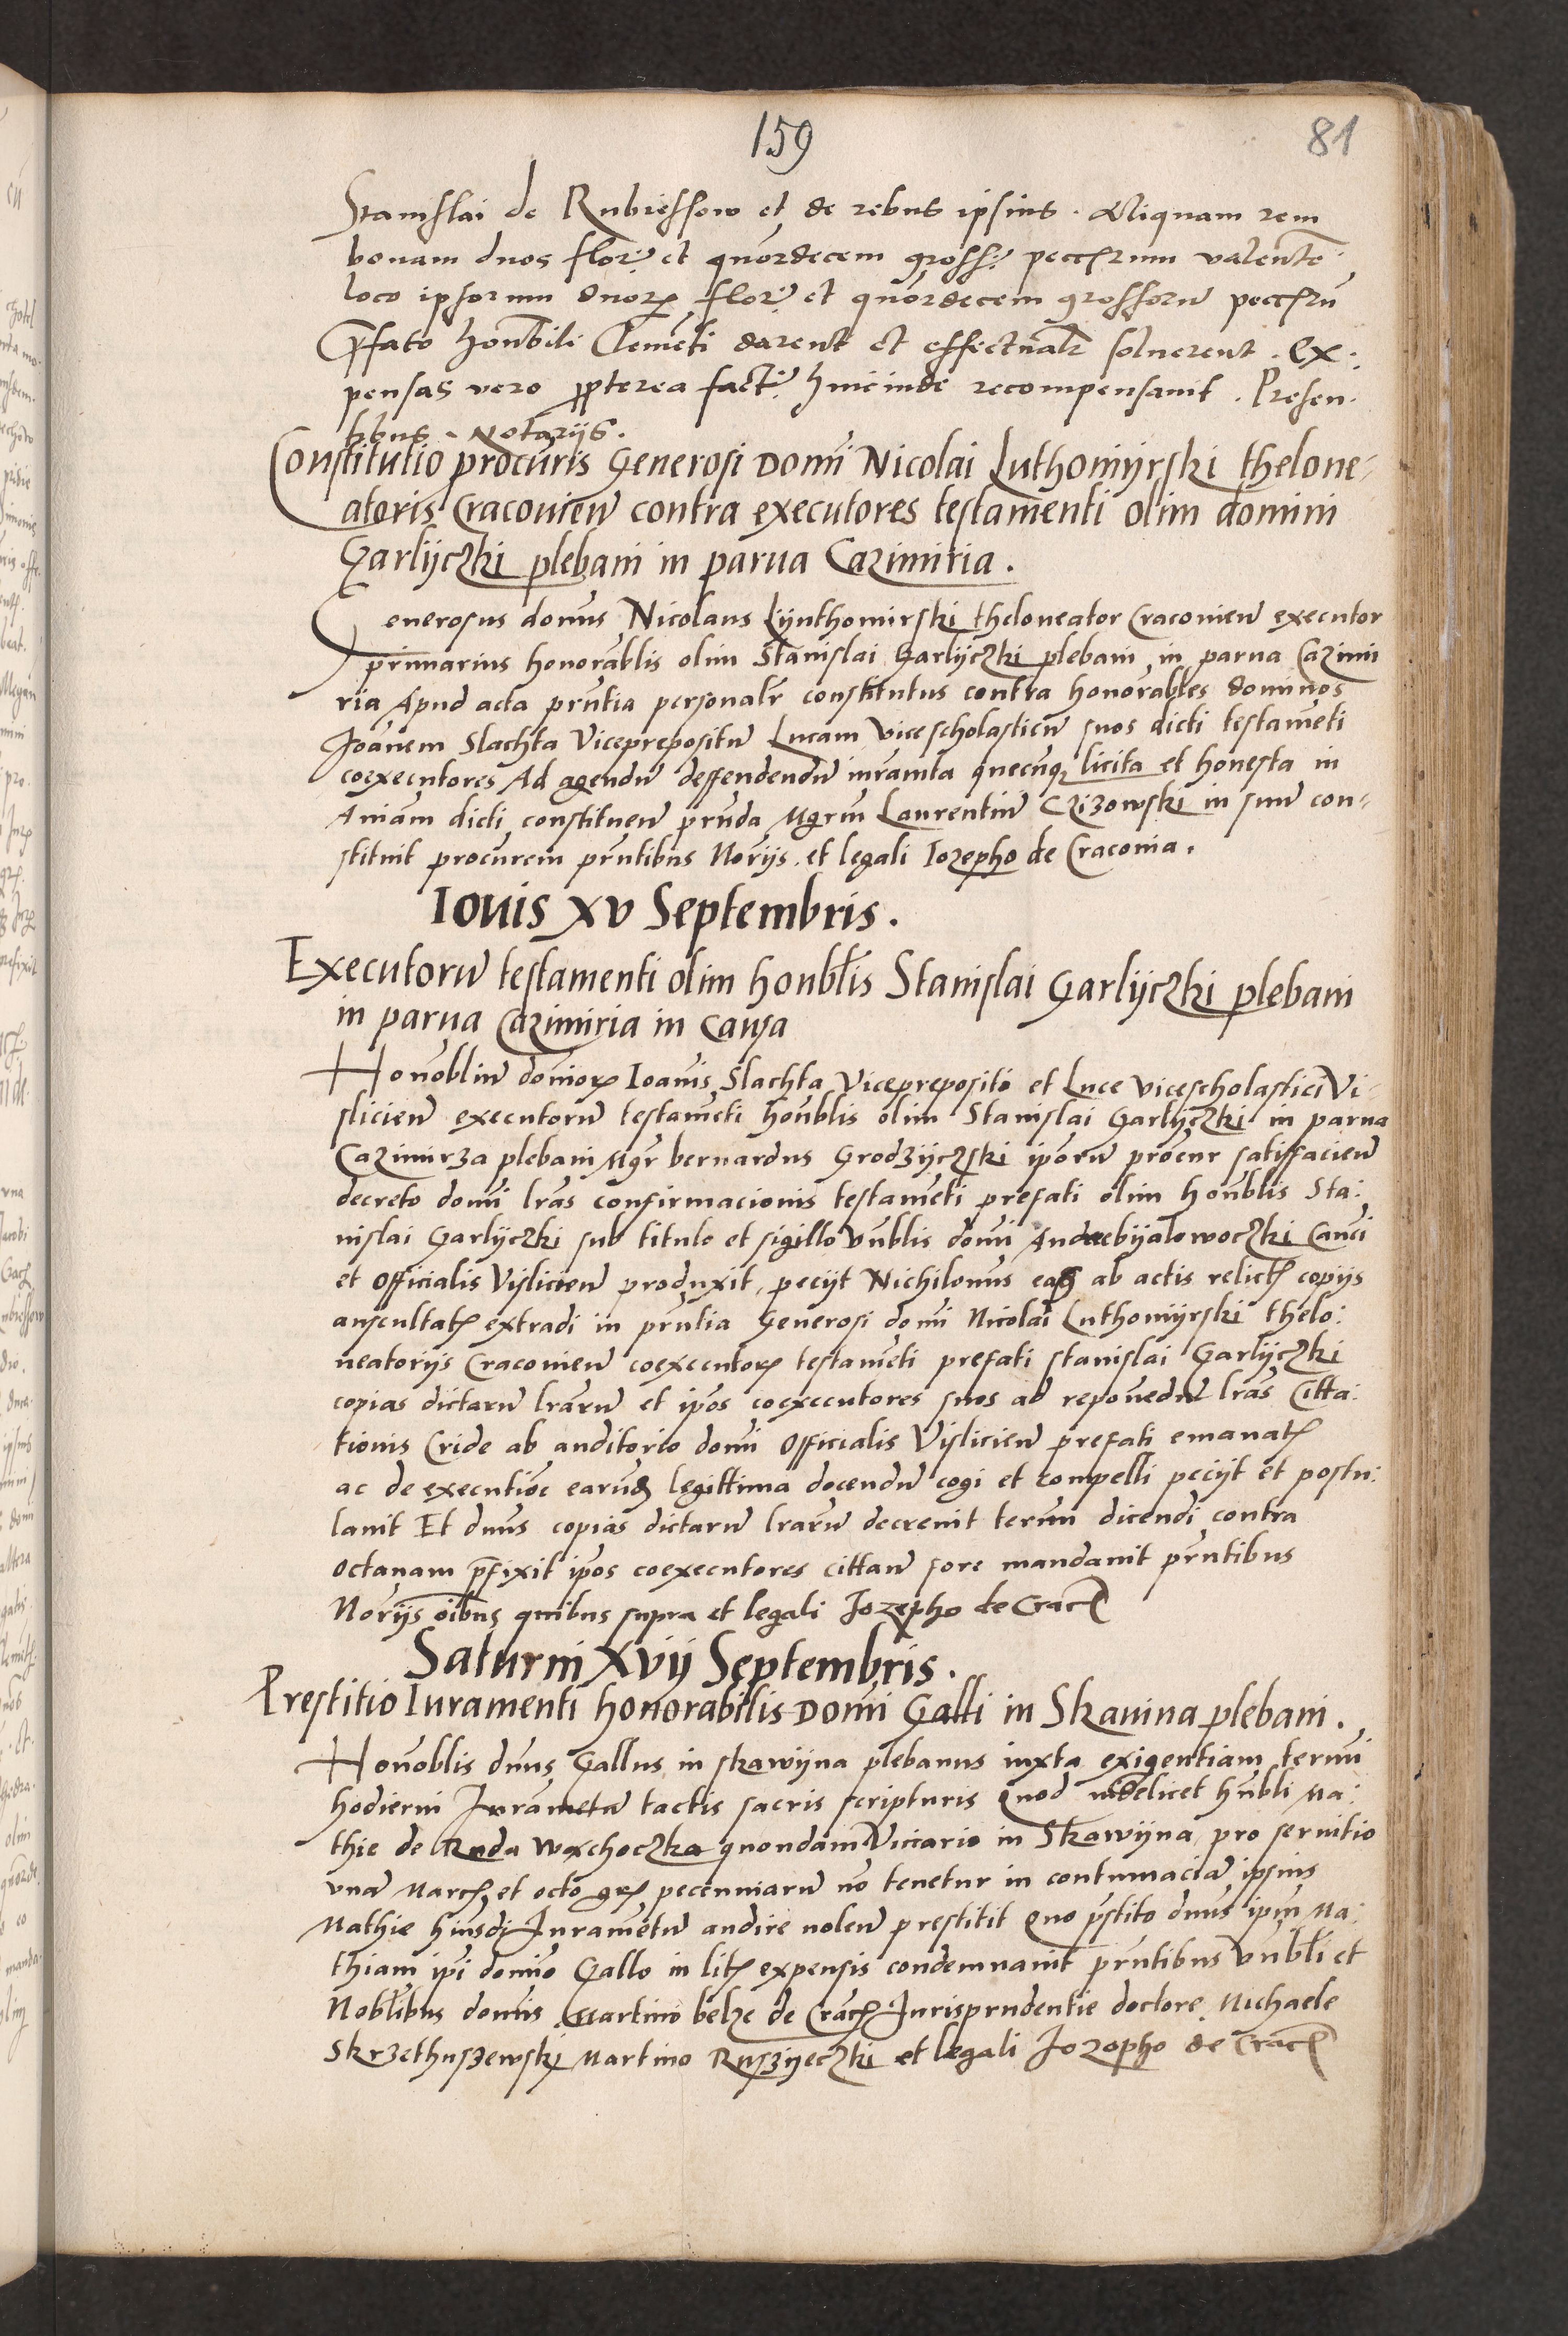 159
81
Stanislai de Rubiessow et de rebus ipsius. Aliquam rem
bonam duos flor: et quordecem gross: peccsrum valente
loco ipsorum duorꝝ flor: et quordecem grossoru peccsru
Prefato honbili Clemeti darent et effectualr soluerent. Ex:
pensas vero propterea fact: hincinde recompensauit. Presen:
tibus Notarijs.
Constitutio procuris Generosi Domi Nicolai Luthomijrski thelone-
atoris Cracovien contra executores testamenti olim domini
Garlijczki plebani in parua Cazimiria.
Generosus domus Nicolaus Lijuthomirski theloneator Cracovien executor
primarius honorablis olim Stanislai Garlijczki plebani in parua Cazimi
ria Apud acta prntia personalr constitutus contra honorables dominos
Joanem Slachta Viceprepositu Lucam vicescholasticu suos dicti testameti
coexecutores Ad agendu deffendendu iuramta quecunqꝫ licita et honesta in
Aniam dicti constituen prnda Mgrm Laurentiu Czizowski in suu con-
stituit procurem prntibus Norijs. et legali Iozepho de Cracouia.
Iouis XV Septembris.
Executoru testamenti olim honblis Stanislai Garlijczki plebani
in parua Cazimiria in causa
Honobliu domorꝝ Ioanis Slachta Viceprepositi et Luce vicescholastici Vi-
slicien executoru testameti honblis olim Stanislai Garlijczki in parua
Cazimirza plebani Mgr bernardus Grodzijczski iporu procur satisfacien
decreto domi lras confirmacionis testameti prefati olim honblis Sta:
nislai Garlijczki sub titulo et sigillo vnblis domi Andree bijalowoczki Canci
et Officialis Vislicien produxit, pecijt Nichilomus easꝫ ab actis relictꝭ copijs
auscultatꝭ extradi in prntia Generosi domi Nicolai Luthomijrski thelo:
neatorijs Cracovien coexecutorꝭ testameti prefati Stanislai Garlijczki
copias dictaru lraru et ipos coexecutores suos ad reponedu lras Citta:
tionis Cride ab auditorio domi Officialis Vislicien prefati emanatꝭ
ac de executioe earudꝫ legittima docendu cogi et compelli pecijt et postu:
lauit Et dnus copias dictaru lraru decreuit termu dicendi contra
octauam pfixit ipos coexecutores cittan fore mandauit prntibus
Norijs oibus quibus supra et legali Jozepho de Cracꝭ
Saturni XVij Septembris.
Prestitio Iuramenti honorabilis Domi Galli in Skauina plebani.
Honoblis dnus Gallus in skawijna plebanus iuxta exigentiam termi
hodierni Jurametu tactis sacris scripturis Quod videlicet hnbli Ma:
thie de Ruda Wachoczka quondam Vicario in Skawijna pro seruitio
vna Marcꝭ et octo grꝭ pecuniaru no tenetur in contumacia ipsius
Mathie huiusdi Jurametu audire nolen prestitit Quo pstito dnus ipm Ma:
thiam ipi domo Gallo in litꝭ expensis condemnauit prntibus vnbli et
Noblibus domis Martino belze de Cracꝭ Jurisprudentie doctore Michaele
Skrzethuszewski Martino Ruszijeczki et legali Jozepho de Cracꝭ